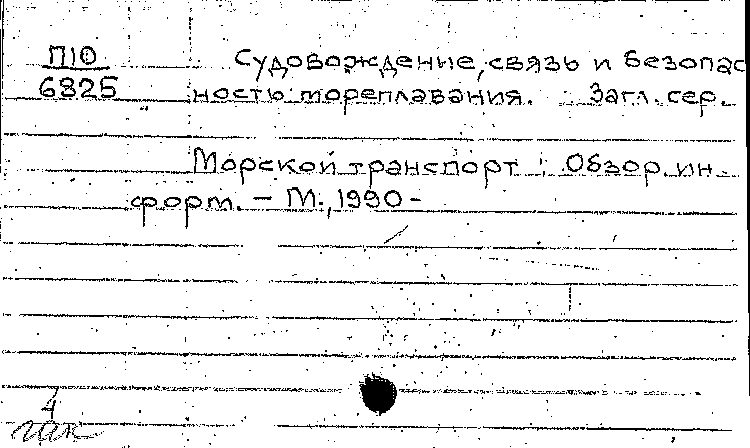 П10 Судовождение, связь и безопас
6825 ность мореплавания. Загл. сер.
Морской транспорт : Обзор. ин-
форм. – М., 1990 -
4